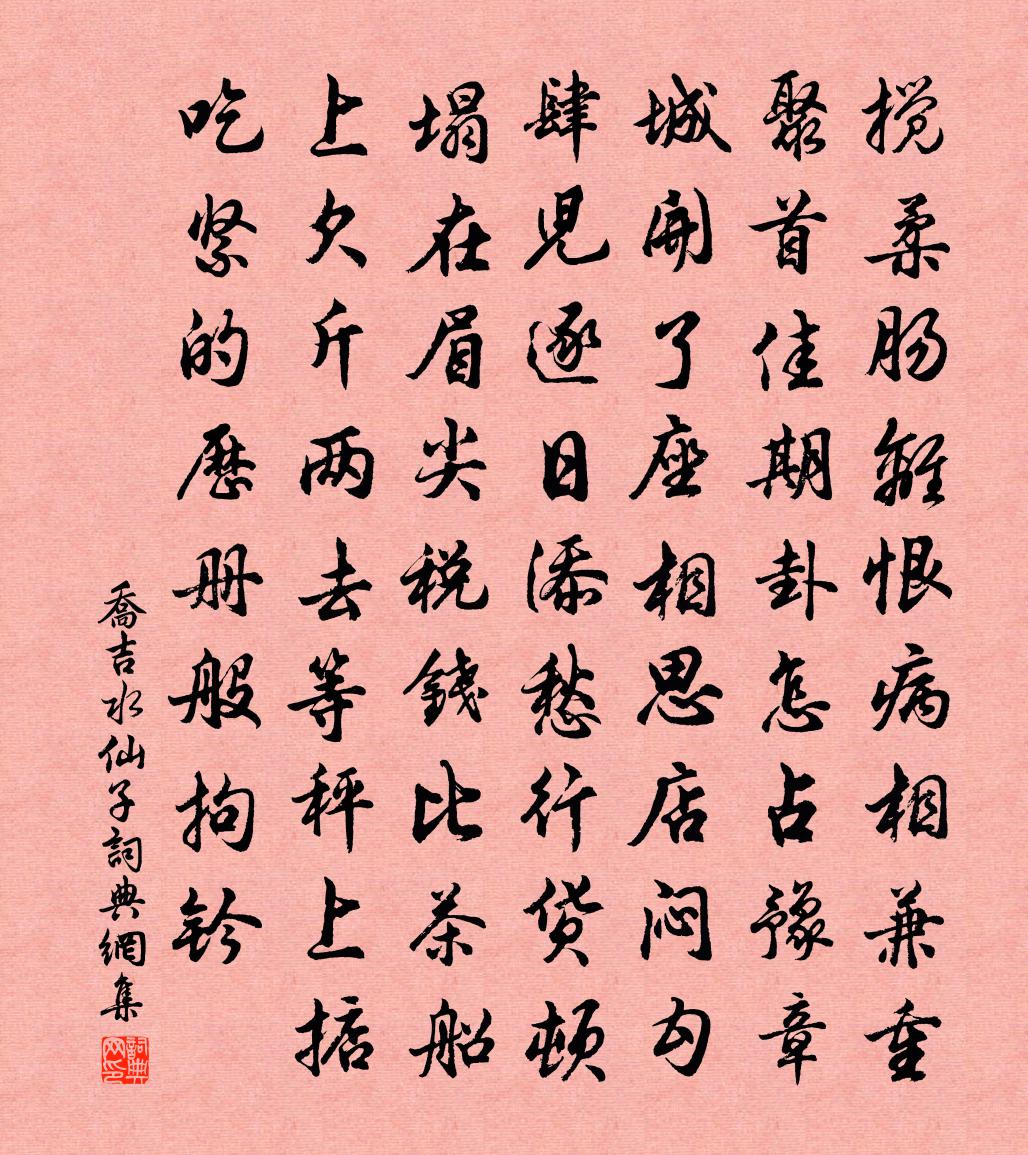 搅柔肠離恨病相兼重
聚首佳期卦怎占豫章
城開了座相思店闷勾
肆兒逐日添愁行货顿
塌在眉尖税錢比茶船
上欠斤两去等秤上掂
吃紧的歷册般拘鈐
喬吉水仙子詞典網集
詞典网印